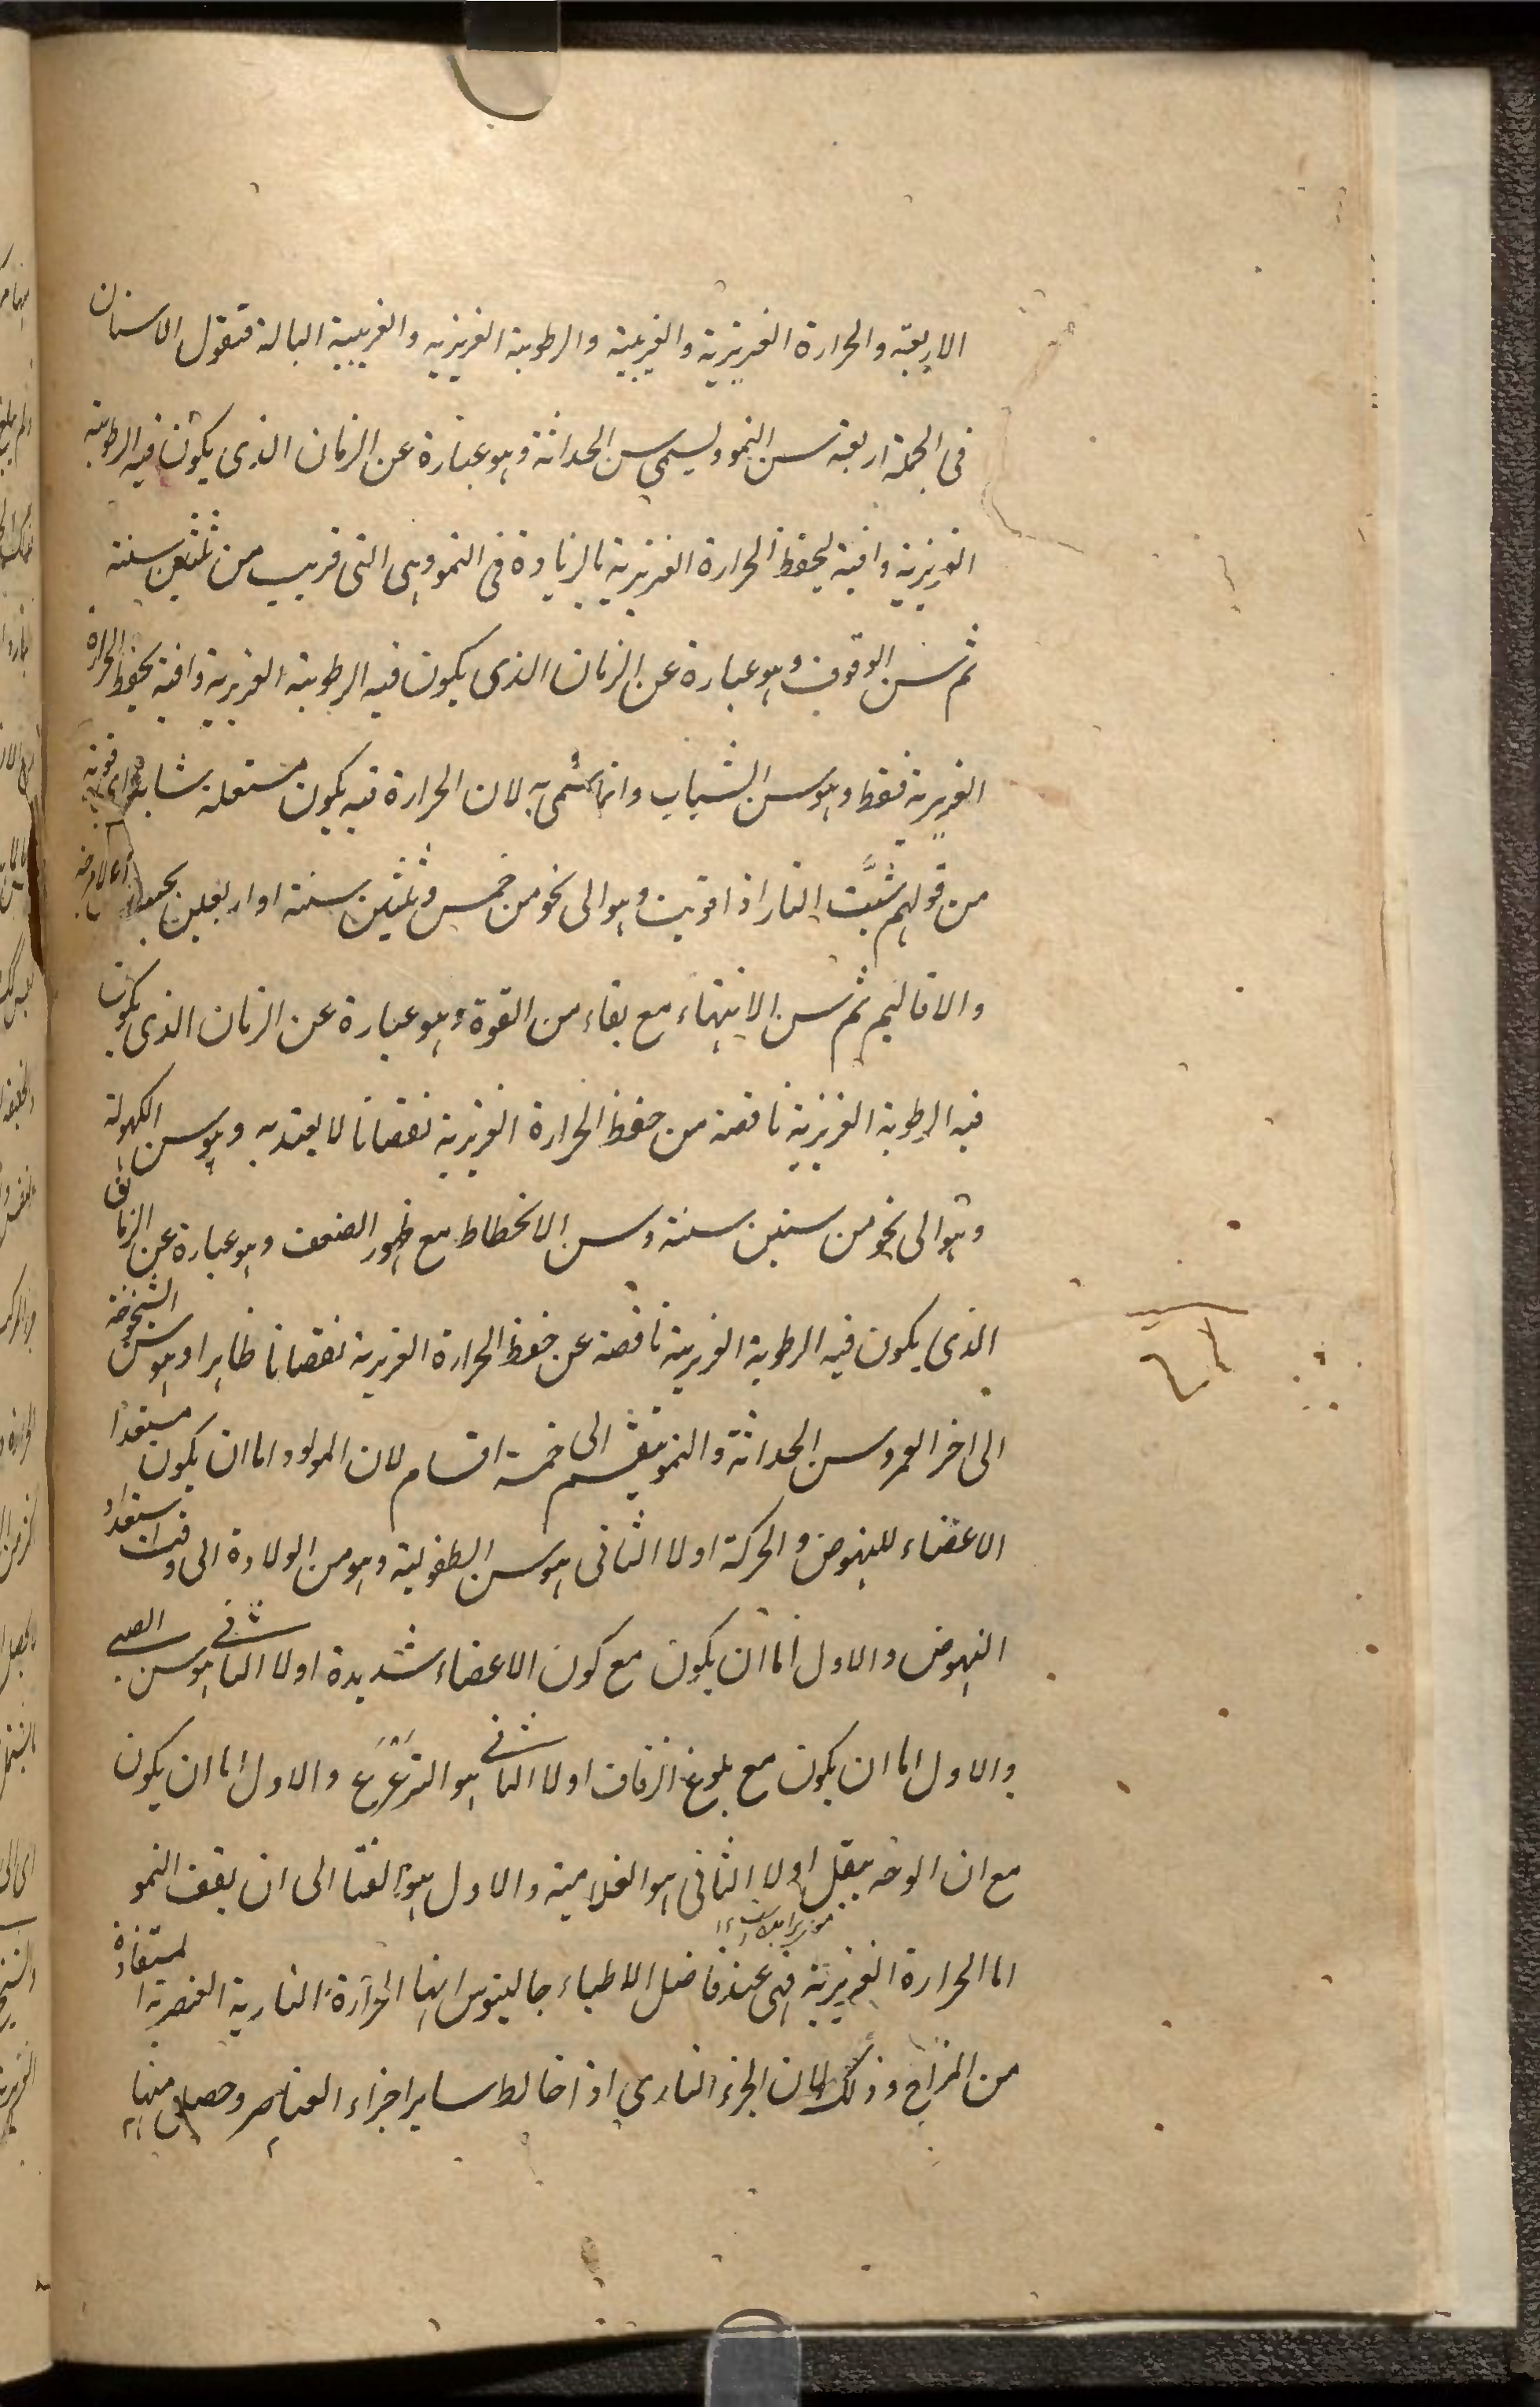 الاربعة والحرارة الغريزية والغريبة والرطوبة الغريزية والغريبية البالة فنقول الاسنان
فى الجملة اربعة سن النمو ويسمى سن الحداثة وهو عبارة عن الزمان الذى يكون فيه الرطوبة
الغريزية وافية لحفظ الحرارة الغريزية بالزيادة فى النمو وهى التى قريب من ثلثين سنة
ثم سن الوقوف وهو عبارة عن الزمان الذى يكون فيه الرطوبة الغريزية وافية بحفظ الحرارة
الغريزية فقط وهو سن الشباب وانما سمى به لان الحرارة فيه يكون مشتعلة شابة اى قوية
من قولهم شبَّت النار اذا قويت وهو الى نحو من خمس وثلثين سنة او اربعين بحسب الامزجة
والاقاليم ثم سن الانتهاء مع بقاء من القوة وهو عبارة عن الزمان الذى يكون
فيه الرطوبة الغريزية ناقصة من حفظ الحرارة الغريزية نقصانا لا يعتد به وهو سن الكهولة
وهو الى نحو من ستين سنة وسن الانحطاط مع ظهور الضعف وهو عبارة عن الزمان
الذى يكون فيه الرطوبة الغريزية ناقصة عن حفظ الحرارة الغريزية نقصانا ظاهرا وهو سن الشيخوخة
الى اخر العمر وسن الحداثة والنمو ينقسم الى خمسة اقسام لان المولود اما ان يكون مستعد
الاعضاء للنهوض والحركة اولا الثانى هو سن الطفولية وهو من الولادة الى وقت استعداد
النهوض والاول اما ان يكون مع كون الاعضاء شديدة اولا الثانى هو سن الصبى
والاول اما ان يكون مع بلوغ الزفاف اولا الثانى هو الترَعرُع والاول اما ان يكون
مع ان الوجه يبقل اولا الثانى هو الغلامية والاول هو الفتا الى ان يقف النمو
اما الحرارة الغريزية فهى عند فاضل الاطباء جالينوس انها الحرارة النارية العنصرية المستفادة
من المزاج وذلك لان الجزء النارى اذا خالط ساير اجزاء العناصر وحصل منها